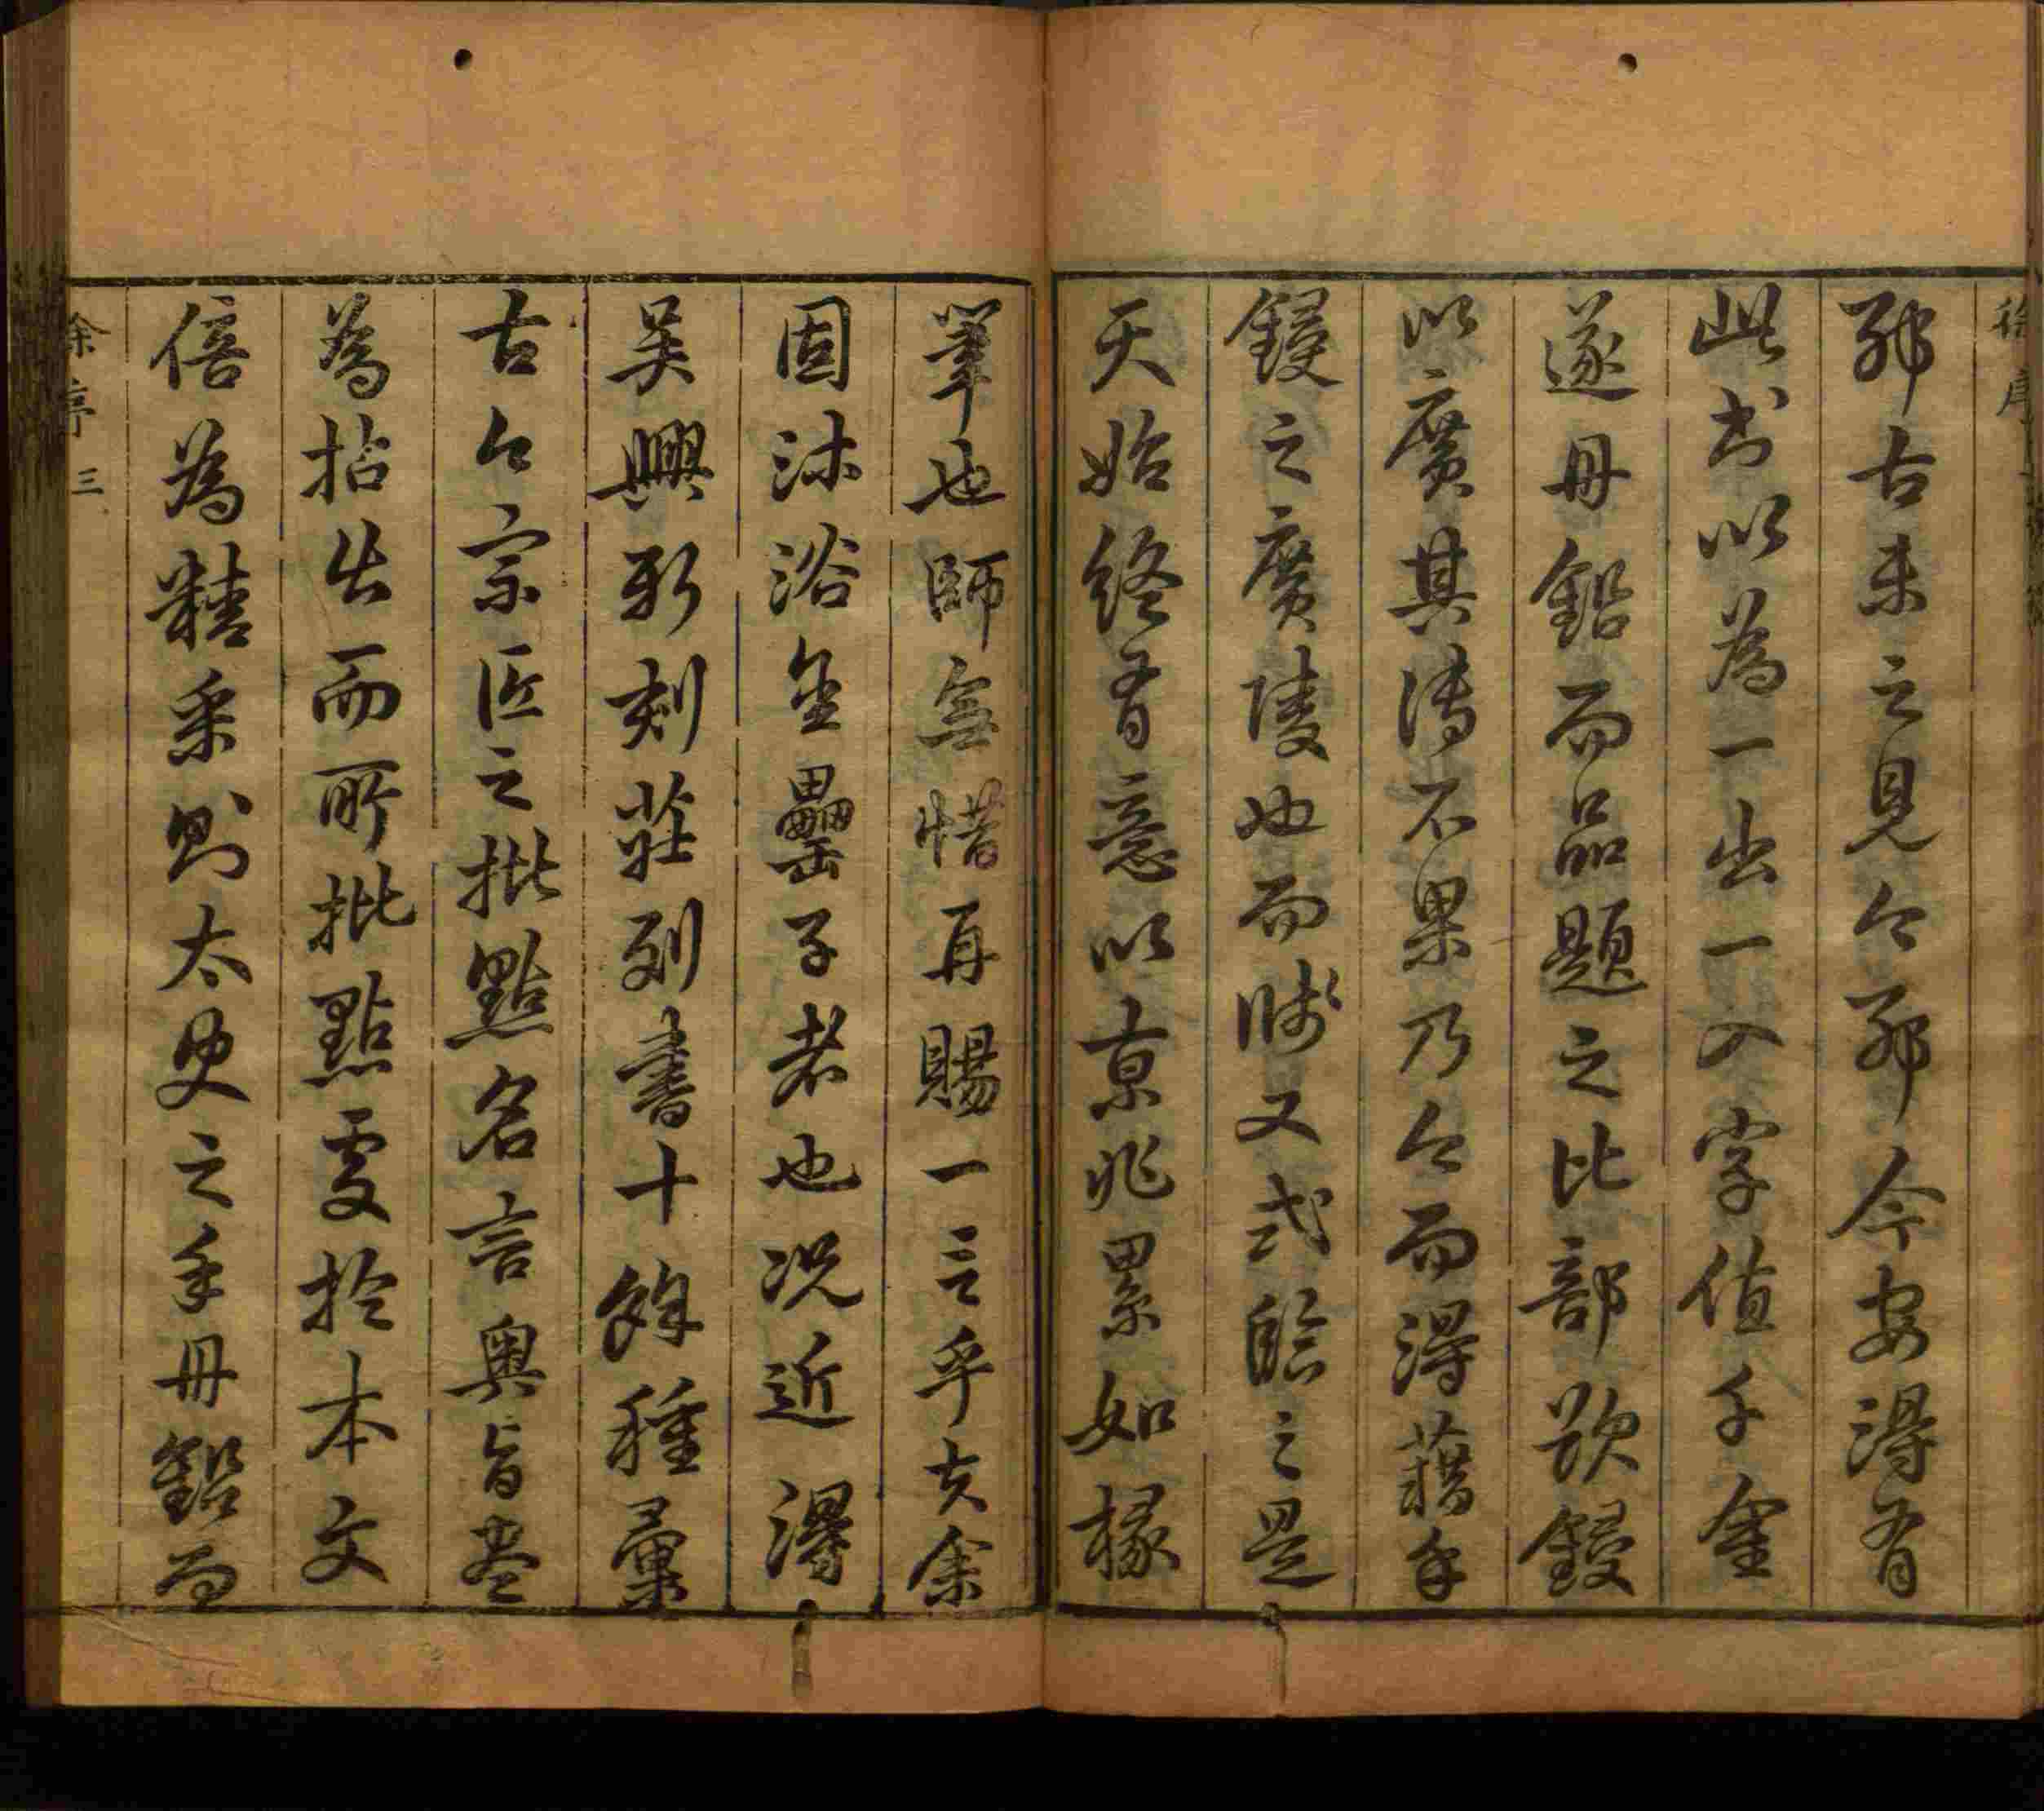 徐序
邪古未之見今邪今安得有
此書以為一出一入字値千金
遂丹鉛而品題之比部欲鋟
以廣其傳不果乃今而得藉手
鋟之廣陵也而賤又弐餂之是
天始終有意以京兆累如椽
筆也師無惜再賜一言乎夫余
固沐浴金罍子者也况近得
吴興新刻莊列書十餘種彙
古今宗匠之批點名言奧旨盡
為拈出而所批點處於本文
倍為精采則太史之手丹鉛而
徐序 三